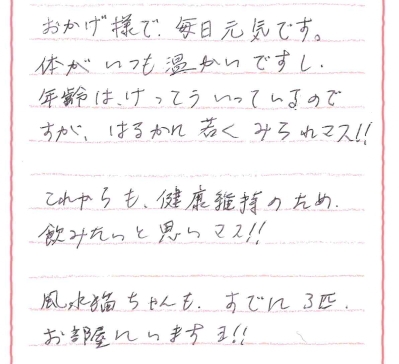 おかげ様で、毎日元気です。
体がいつも温かいですし、
年齢は、けってういっているので
すが、はるかに若くみられマス!!
これからも、健康維持のため、
飲みたいと思いマス!!
風水猫ちゃんも、すでに3匹、
お部屋にいますヨ!!